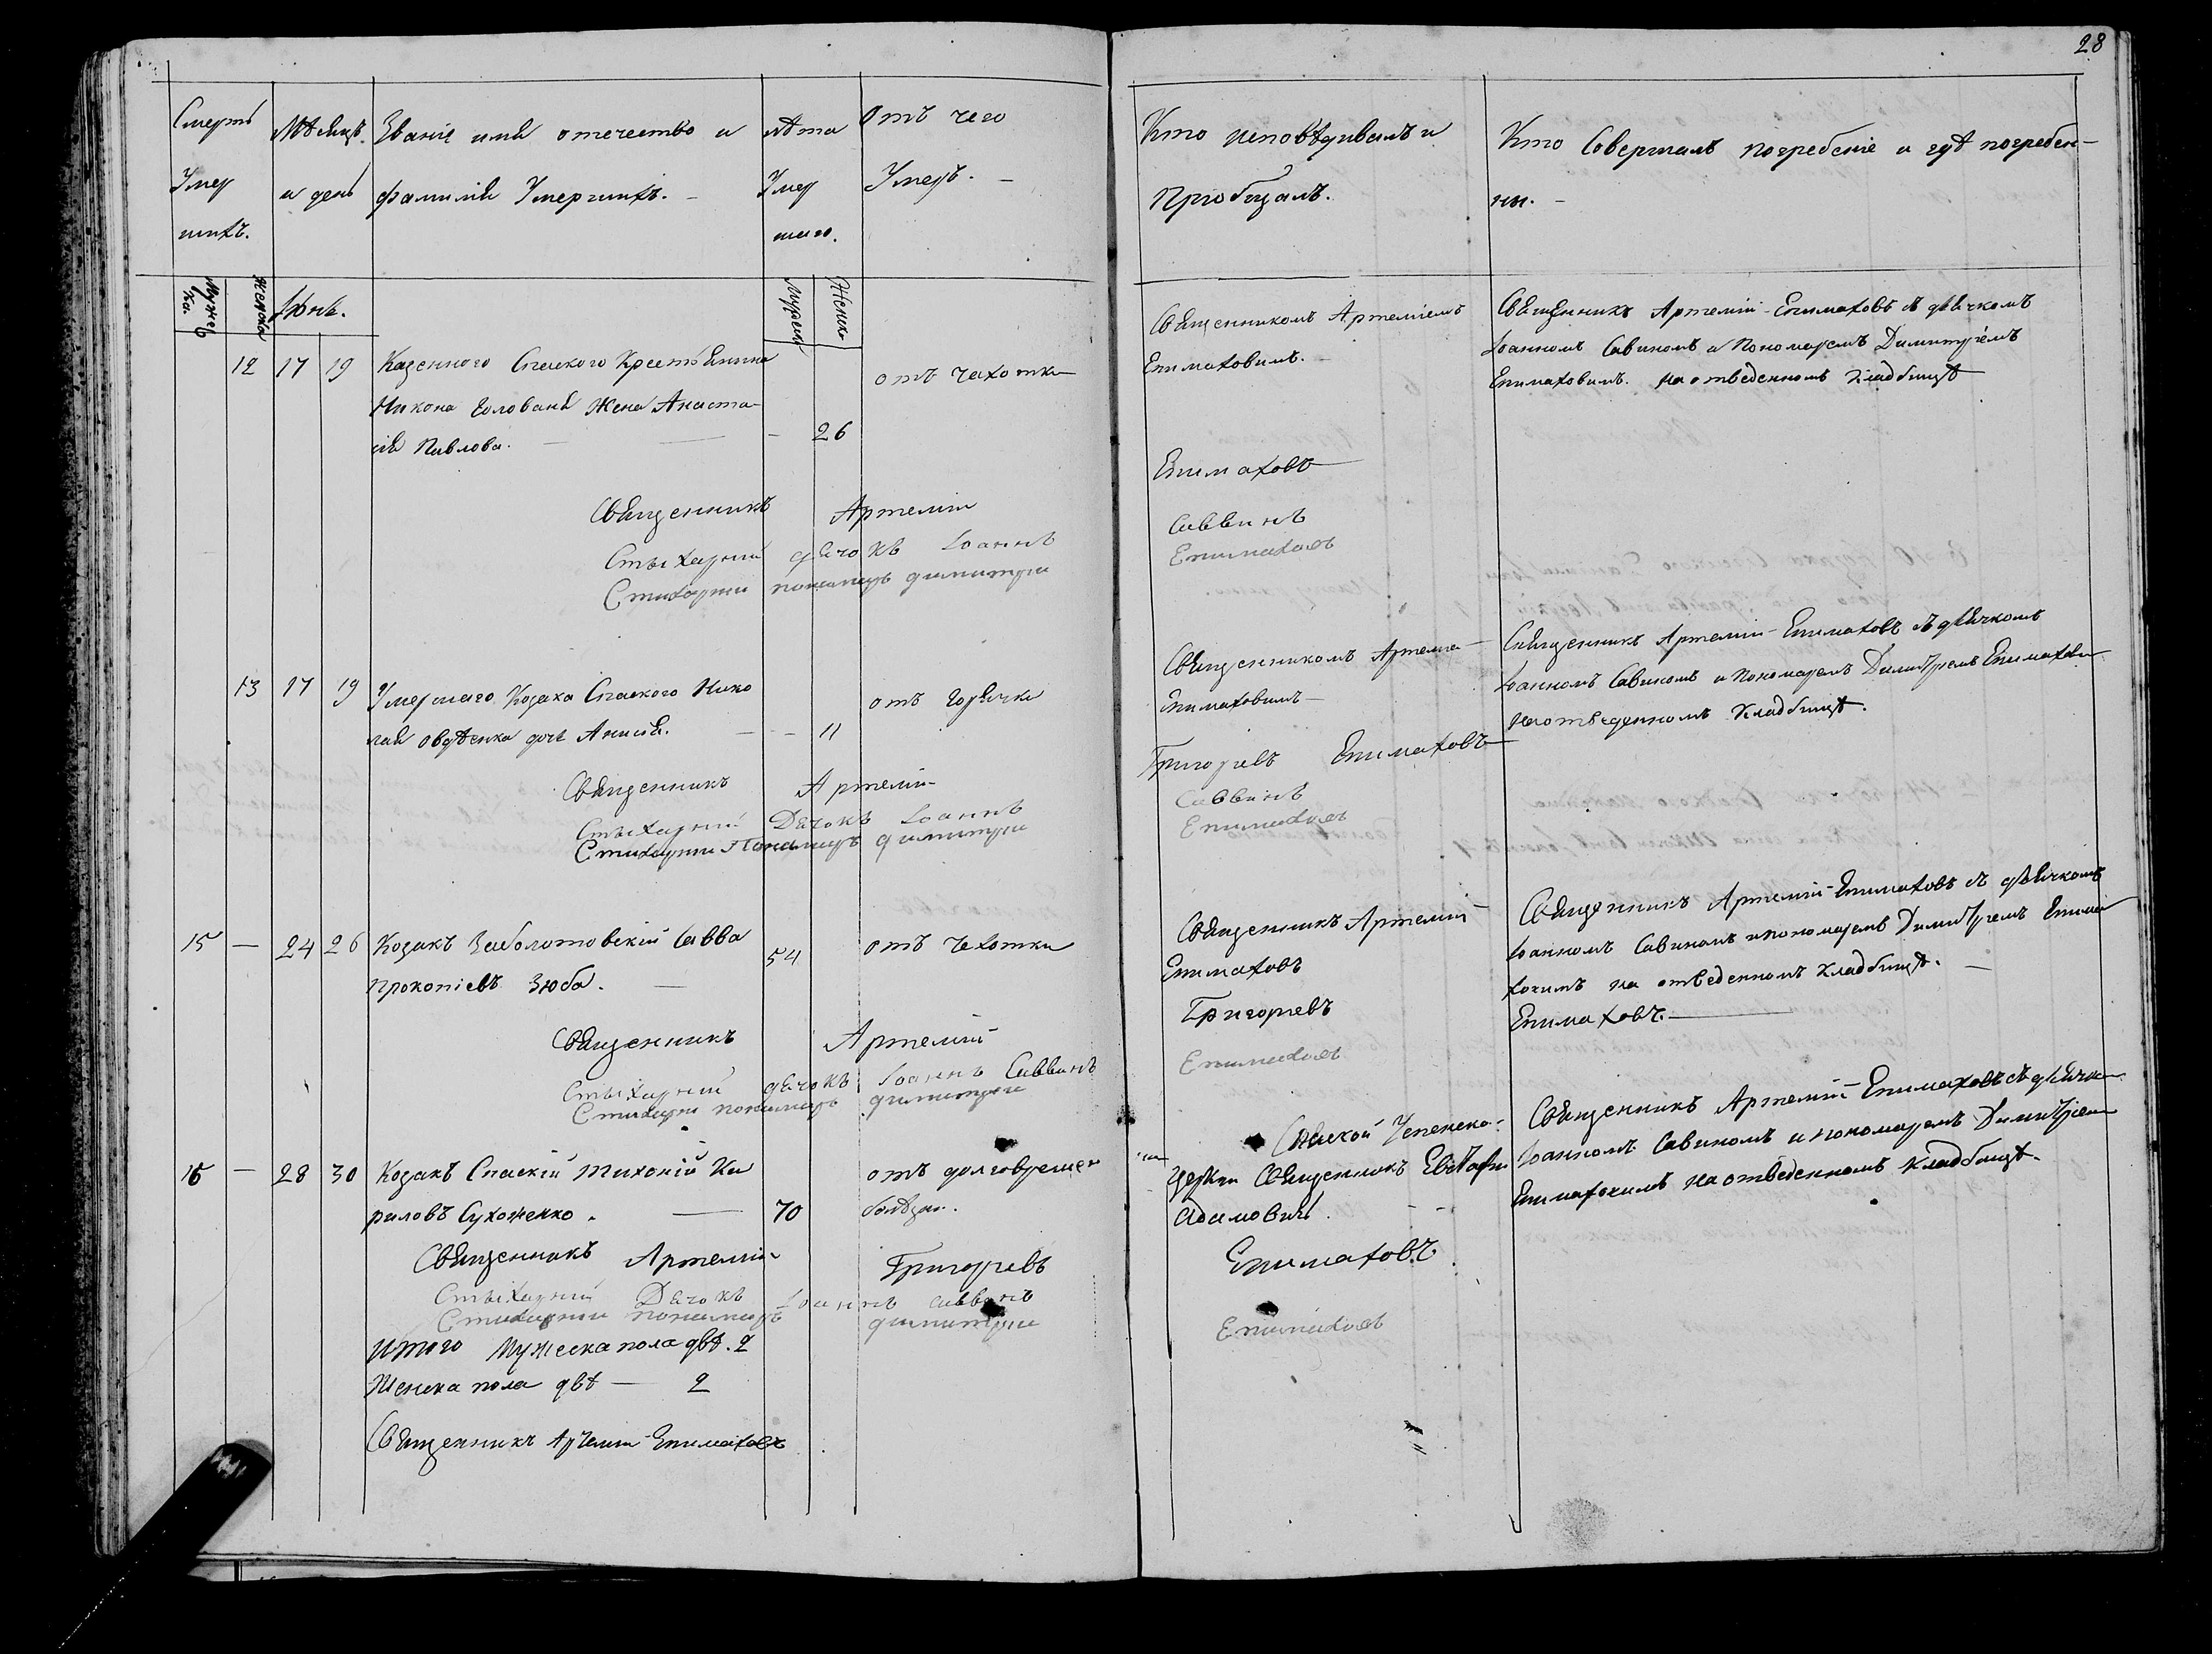 28
Смерть Умершихъ.
Мѣсяцъ и день
Званіе имя отечество и
фамилія Умершихъ. –
лѣта Умершаго.
Отъ чего
Умеръ. –
Кто исповѣдивалъ и
Пріобщалъ.
Кто Совершалъ погребеніе и гдѣ погребен-
ны. –
Мужеска.
Женска
Іюнь.
Мужеск
Женско
12 17 19
Казенного Спаского Крестьянина
Никона Голованя Жена Анаста-
сія Павлова.
– 26
отъ чахотки
Священникомъ Артеміемъ
Епимаховимъ. –
Священникъ Артемій Епимаховъ съ дьячкомъ
Іоанномъ Савиномъ и Пономаремъ Димитріемъ
Епимаховимъ. на отведенномъ Кладбищѣ
Священникъ Артемій
Епимаховъ
Стыхарний дьячокъ Іоаннъ
Саввинъ
Стихарни пономаръ димитри
Епимаховъ
13 17 19
Умершаго Козака Спаского Нико
лая овдѣенка дочь Анисія.
– – 11
отъ Горячки
Священникомъ Артеміе
Епимаховимъ –
Священникъ Артемій Епимаховъ съ дьячкомъ
Іоанномъ Савиномъ и Пономаремъ Димитріемъ Епимахови
на отведенномъ Кладбищѣ.
Священникъ Артемій
Григоріевъ Епимаховъ
Стыхарний Дьчокъ Іоаннъ
Саввинъ
Стихарни Пономаръ димитри
Епимаховъ
15 — 24 26
Козакъ Заболотовскій Савва
Прокопіевъ Зюба. —
54
отъ чахотки
Священникъ Артемій
Епимаховъ
Священникъ Артемій Епимаховъ съ дьячкомъ
Іоанномъ Савиномъ и пономаремъ Димитріемъ Епима
ховимъ на отведенномъ Кладбищѣ. —
Священникъ Артемій
Григоріевъ
Епимаховъ.
Стыхарний дьячокъ Іоаннъ Саввинъ
Стихарни пономаръ димитри
Епимаховъ
16 — 28 30
Козакъ Спаскій Тихоній Ки
риловъ Сухоженко. —
70
отъ долговремен
болѣзни.
Спаской Успенско-
Церкви Священникъ Евстафи
Адамовичъ.
Священникъ Артемій Епимаховъ съ дьячко
Іоанномъ Савиномъ и пономаремъ Димитріем
Епимаховимъ на отведенномъ Кладбищѣ.
Священникъ Артемій Григоріевъ
Епимаховъ
Стыхарний Дьчокъ Іоаннъ саввинъ
Стихарни пономаръ димитри
Епимаховъ
Итого Мужеска пола двѣ. 2
Женска пола двѣ — 2
Священникъ Артемій Епимаховъ